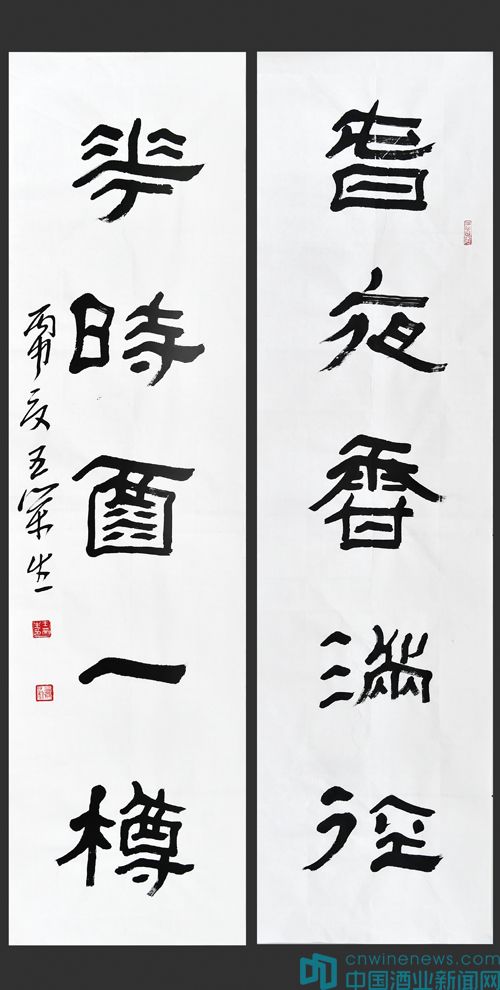 春夜香滿徑
花時酒一樽
丙申夏王荣生
cnwinenews.com
中国酒业新闻网